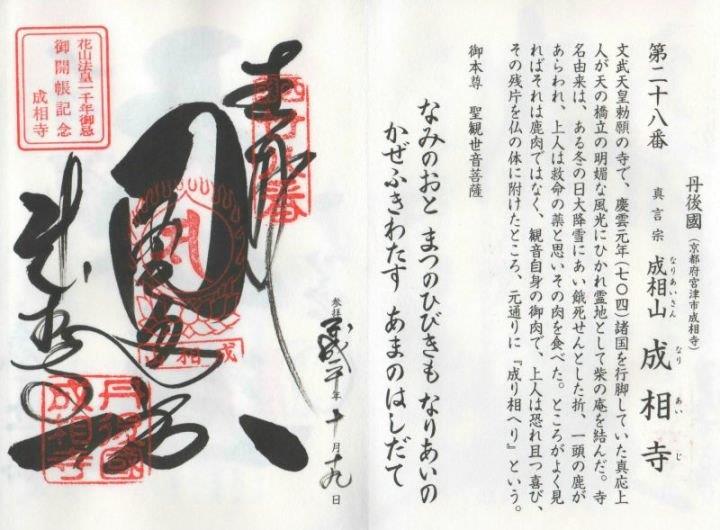 丹後國（京都府宮津市成相寺）
第二十八番　真言宗　成相山　成相寺
なりあいさん
なり あい じ
文武天皇勅願の寺で、慶雲元年（七〇四）諸国を行脚していた真応上
人が天の橋立の明媚な風光にひかれ霊地として柴の庵を結んだ。寺
名由来は、ある冬の日大降雪にあい餓死せんとした折、一頭の鹿が
あらわれ、上人は救命の薬と思いその肉を食べた。ところがよく見
ればそれは鹿肉ではなく、観音自身の御肉で、上人は恐れ且つ喜び、
その残片を仏の体に附けたところ、元通りに『成り相へり』という。
御本尊　聖観世音菩薩
なみのおと まつのひびきも なりあいの
かぜふきわたす あまのはしだて
参拝
年十月十九日
奉拝
西国廿八番
成相山
丹後國
成相寺
花山法皇一千年御忌
御開帳記念
成相寺